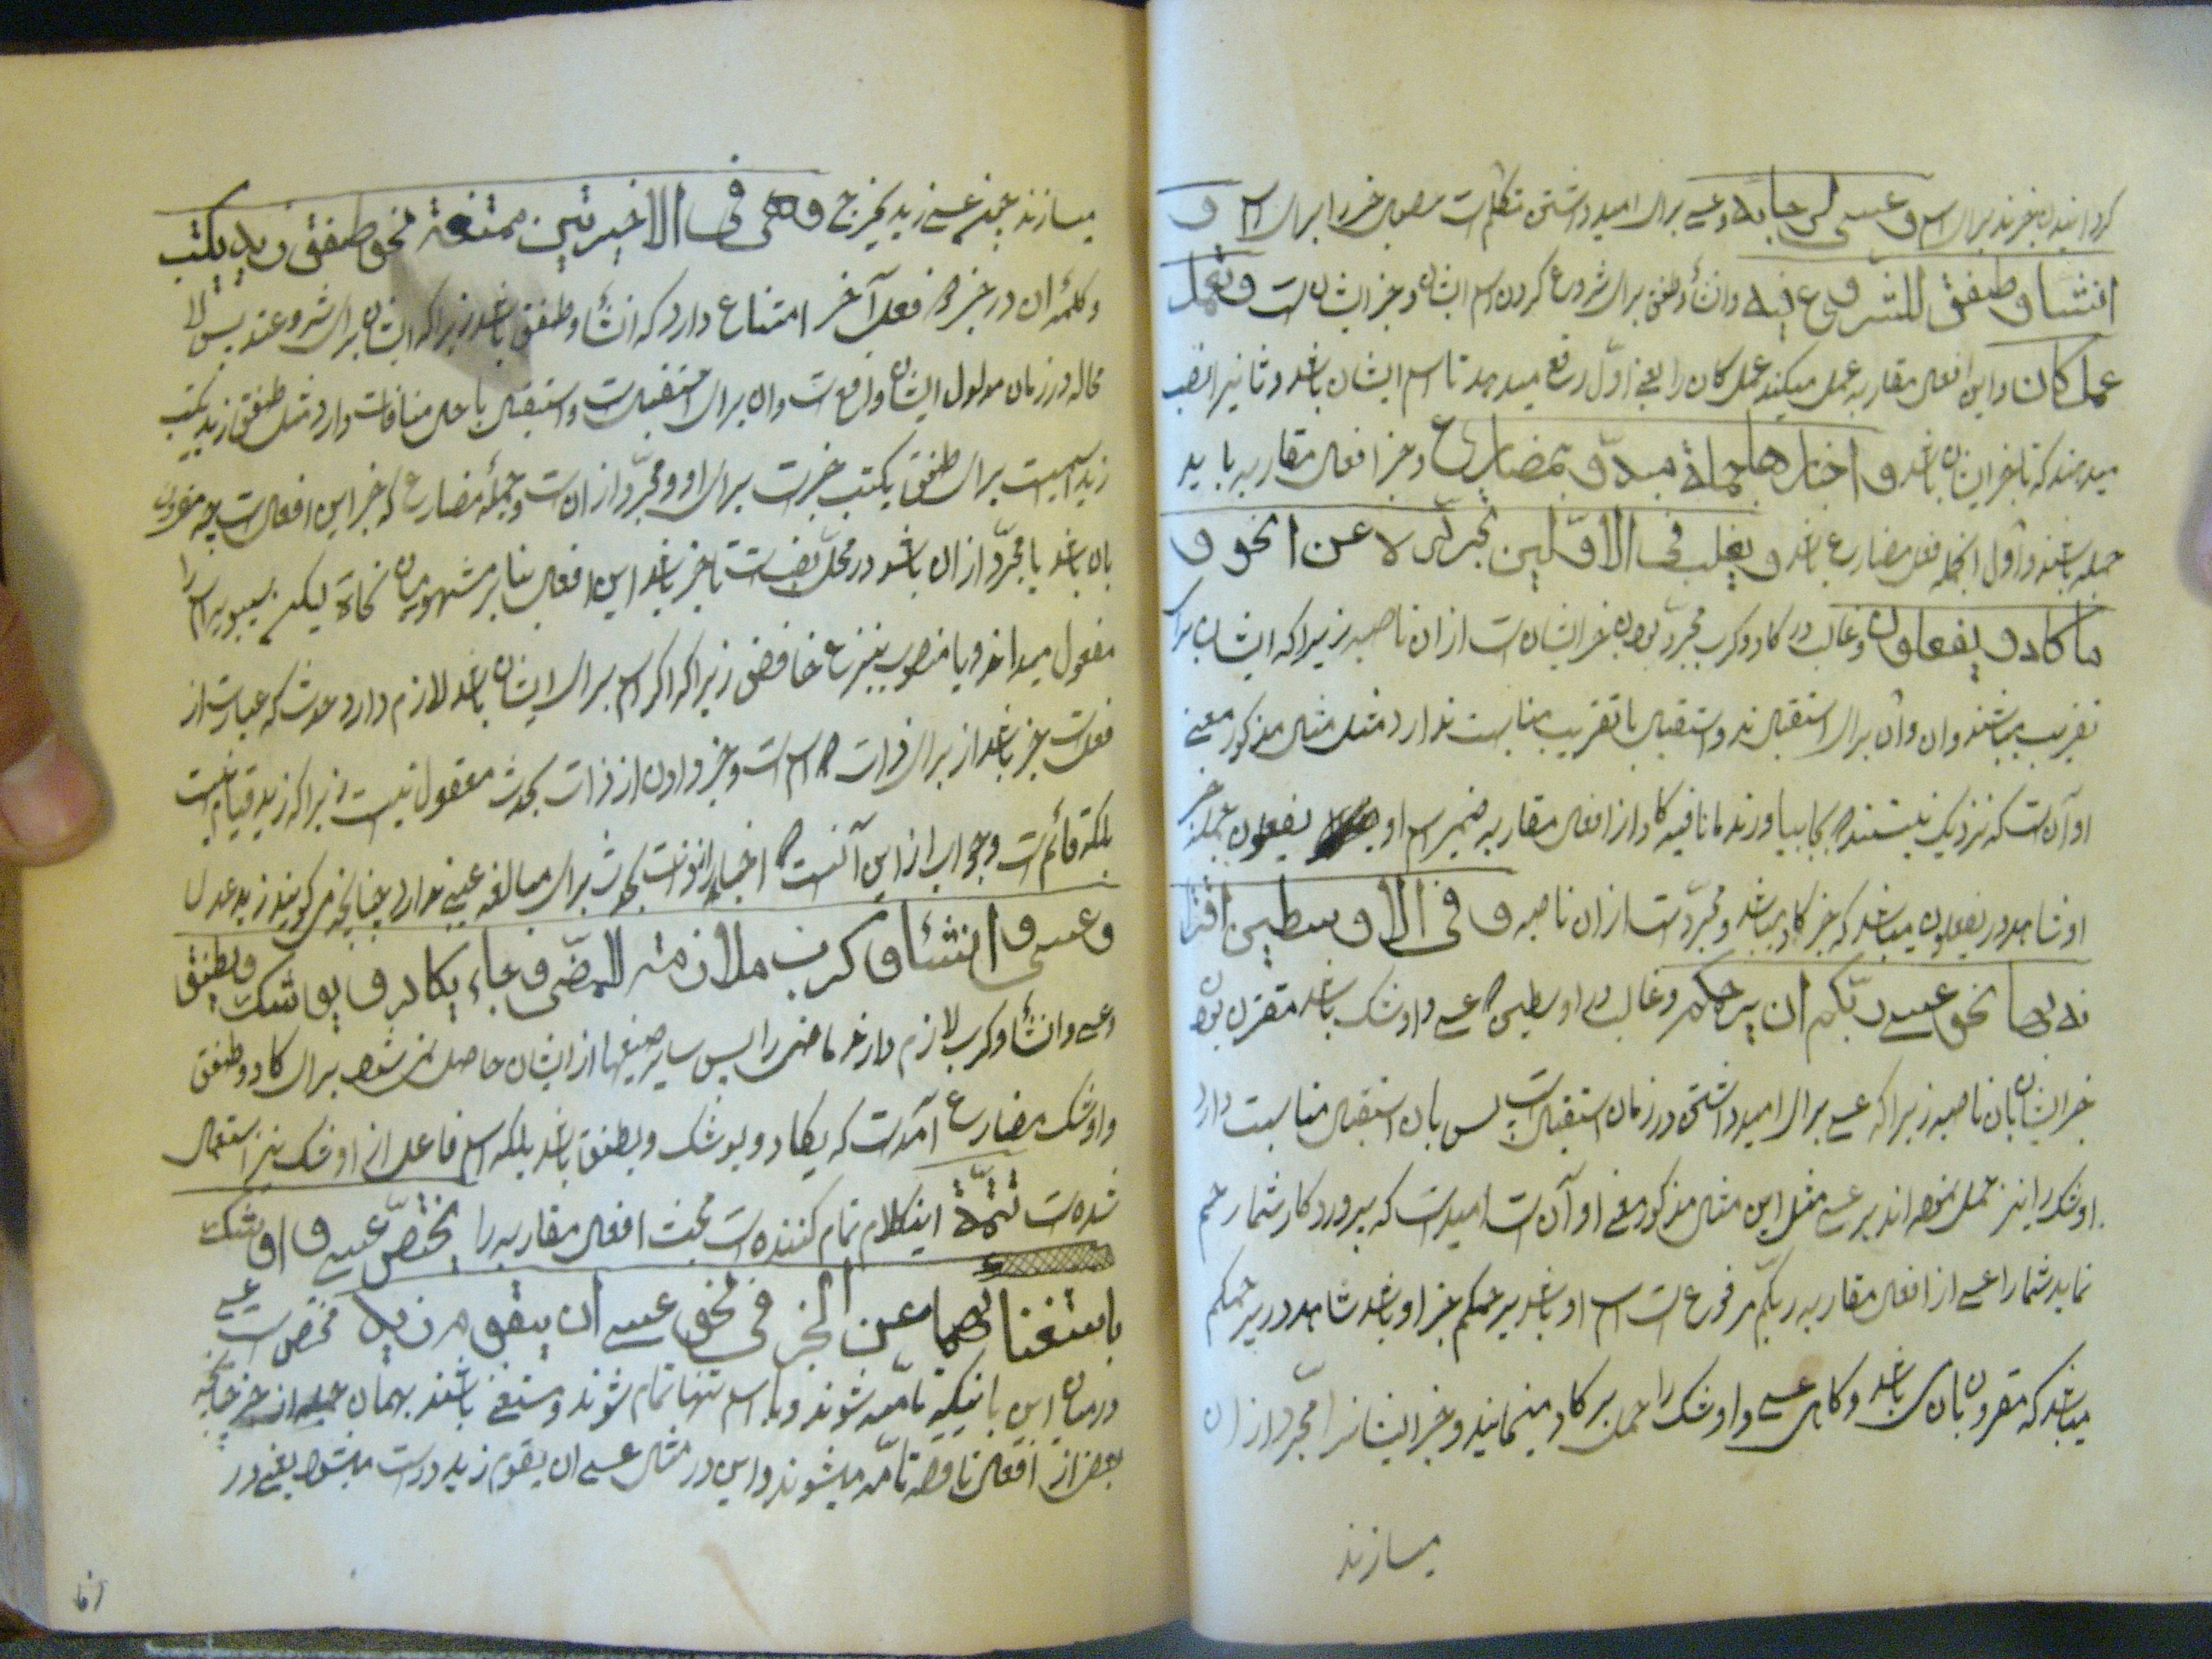 گردانیدن خبرند برای اسم و عسی لرجائه و عسی برای امید داشتن متکلم است حصول خبر را برای اسم و
انشأ و طفق للشروع فیه و انشأ و طفق برای شروع کردن اسم ایشان در خبر ایشان است و تعمل
عمل کان و این افعال مقاربه عمل میکنند عمل کان را یعنی اول رفع میدهند تا اسم ایشان باشد و ثانی را نصب
میدهند که تا خبر ایشان باشد و اخبارها جملة مبدوة بمضارع و خبر افعال مقاربه باید
جمله باشند و اول آنجمله فعل مضارع باشد و یغلب فی الاولین تجرده عن ان نحو و
ما کادوا یفعلون و غالب در کاد و کرب مجرد بودن خبر ایشان است از ان ناصبه زیرا که ایشان برای
تقریب میباشند و ان برای استقبالند و استقبال با تقریب مناسبت ندارد مثل مثال مذکور معنی
او آن است که نزدیک نیستند که بجا بیاورند ما نافیه کاد از افعال مقاربه ضمیر اسم او یفعلون جمله خبر
او شاهد در یفعلون میباشد که خبر کاد میباشد و مجرد است از ان ناصبه و فی الاوسطین اقترا
نه بها نحو عسی ربکم ان یرحمکم و غالب در اوسطین که عسی و اوشک باشد مقترن بودن
خبر ایشان بان ناصبه زیرا که عسی برای امید داشتن در زمان استقبال است پس با ان استقبال مناسبت دارد
اوشک را نیز حمل نموده اند بر عسی مثل این مثال مذکور معنی او آن است امید است که پروردگار شما رحم
نماید شما را عسی از افعال مقاربه ربکم مرفوع است اسم او باشد یرحمکم خبر او باشد شاهد در یرحمکم
میباشد که مقرون بان باشد و گاهی عسی و اوشک را حمل بر کاد مینمایند و خبر ایشانرا مجرد از ان
میسازند
میسازند چون عسی زید یخرج و هی فی الاخیرتین ممتنعة نحو طفق زید یکتب
و کلمهٔ ان در خبر دو فعل آخر امتناع دارد که انشأ و طفق باشد زیرا که ایشان برای شروعند پس لا
محاله در زمان مدلول ایشان واقع است و ان برای استقبال است و استقبال با حال منافات دارد مثل طفق زید یکتب
زید اسمیست برای طفق یکتب خبر است برای او و مجرد از ان است و جملهٔ مضارع که خبر این افعال است چه مقرون
بان باشد یا مجرد از ان باشد در محل نصب است تا خبر باشد این افعال بنا بر مشهور میان نحاة لیکن سیبویه اسم را
مفعول میداند و یا منصوب بنزع خافض زیرا که اگر اسم برای ایشان باشد لازم دارد حدث که عبارت از
فعل است خبر باشد از برای ذات که اسم است و خبر دادن از ذات بحدث معقول نیست زیرا که زید قیام نیست
بلکه قائم است و جواب از این آنست که اخبار از ذات بحدث برای مبالغه عیبی ندارد چنانچه میگویند زید عدل
و عسی و انشأ و کرب ملازمة للمضی و جاء یکاد و یوشک و یطفق
و عسی و انشأ و کرب لازم دارند ماضی را پس سایر صیغها از ایشان حاصل نمیشود برای کاد و طفق
و اوشک مضارع آمده است که یکاد و یوشک و یطفق باشد بلکه اسم فاعل از اوشک نیز استعمال
شده است تتمة اینکلام تمام کننده است مبحث افعال مقاربه را یختص عسی و اوشک
باستغنائهما عن الخبر فی نحو عسی ان یقوم زید مختص است عسی
در میان این باینکه تامه شوند و با اسم تنها تمام شوند و مستغنی باشند بهمان جمله از خبر چنانچه
بعض از افعال ناقصه تامه میشوند و این در مثال عسی ان یقوم زید درست میشود یعنی در